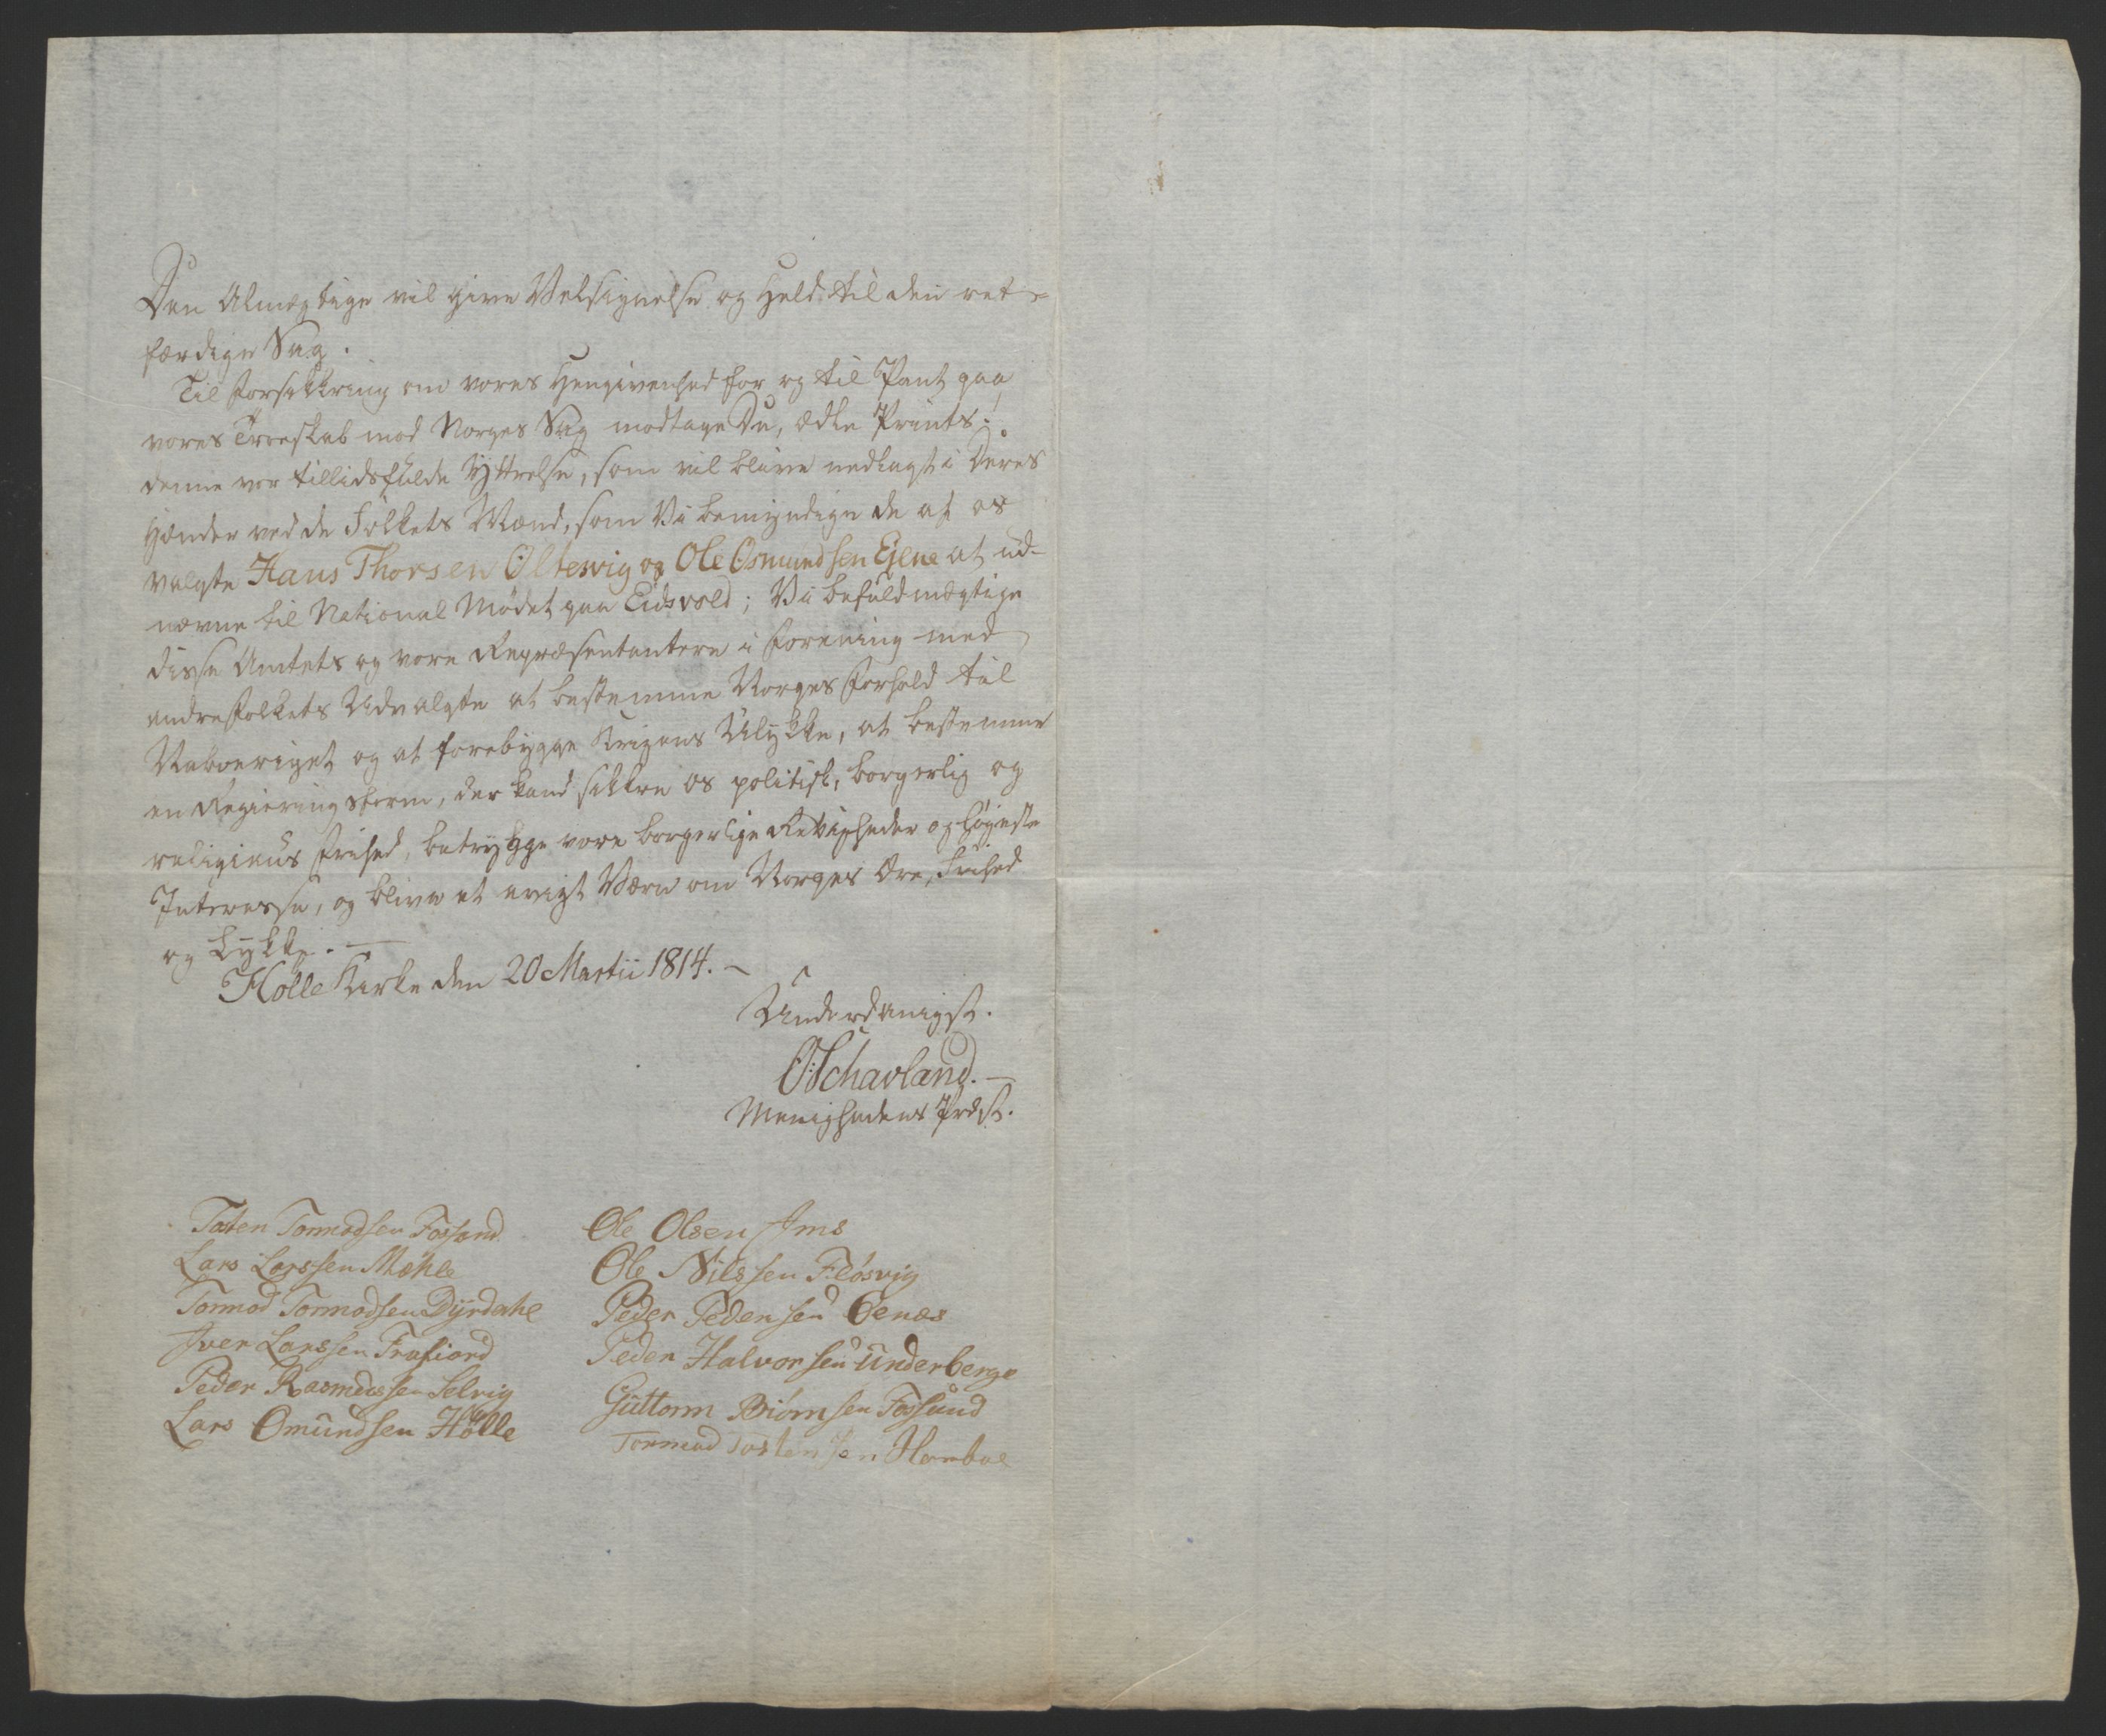 Den Almægtige vil give Velsignelse og Held til den ret-
færdige Sag.
Til Forsikkring om vores Hengivenhed for og til Pant paa
vores Troeskab mod Norges Sag modtage Du, ædle Prints!
denne vor tillidsfulde Yttrelse, som vil blive nedlagt i Deres
Hænder ved de Folkets Mænd, som Vi bemyndige de af os
valgte Hans Thorsen Oltesvig og Ole Osmundsen Ejene at ud-
nævne til National Mødet paa Eidsvold; Vi befuldmægtige
disse Amtets og vore Repræsentantere i Forening med
andre Folkets Udvalgte at bestemme Norges Forhold til
Naboeriget og at forebygge Krigens Ulykke, at bestemme
en Regieringsform, der kand sikkre os politisk, borgerlig og
religieus Frihed, betrygge vore borgerlige Rettigheder og høyeste
Interesse, og blive et evigt Værn om Norges Ære, Frihed
og Lykke. —
Hølle Kirke den 20 Martii 1814. —
Underdanigst.
O: Schavland. —
Menighedens Præst.
Tosten Tormodsen Fossand
Lars Larssen Mæhle
Tormod Tormodsen Dyrdahl
Iver Larssen Frafiord
Peder Rasmussen Selvig
Lars Omundsen Hølle
Ole Olsen Ims
Ole Nilssen Fløsvig
Peder Pedersen Eenæs
Peder Halvorsen Underberge
Guttorm Biørnsen Fossand
Tormod Tostensen